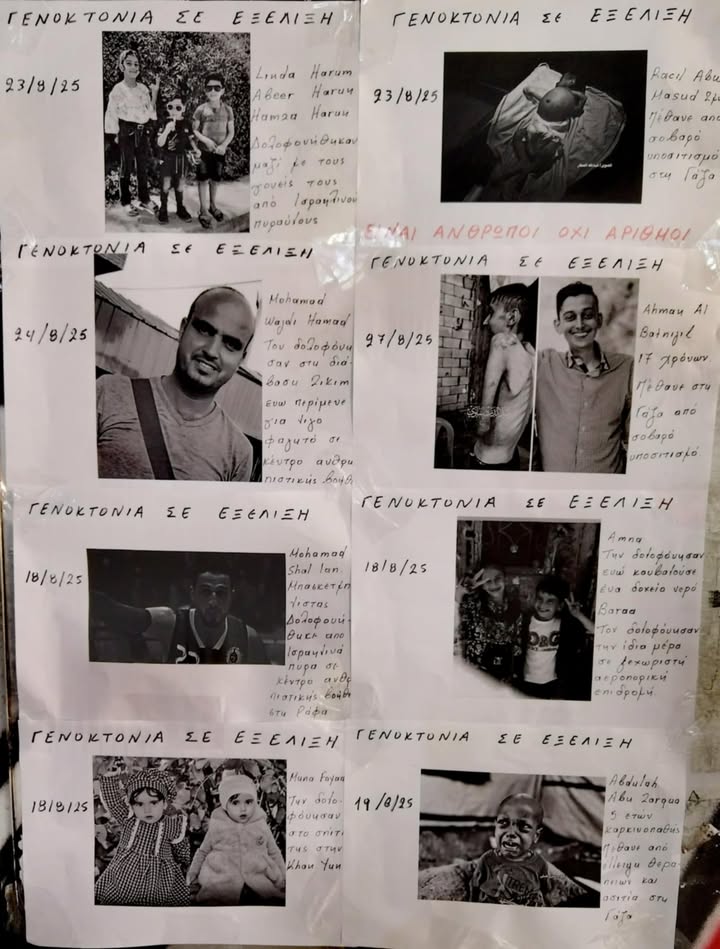 ΓΕΝΟΚΤΟΝΙΑ ΣΕ ΕΞΕΛΙΞΗ
23/8/25
Linda Harun
Abeer Harun
Hamza Harun
Δολοφονήθηκαν
μαζί με τους
γονείς τους
από Ισραηλινου
πυραύλους
ΓΕΝΟΚΤΟΝΙΑ ΣΕ ΕΞΕΛΙΞΗ
23/8/25
Abu
Masud
Πέθανε από
σοβαρό
υποσιτισμό
στη Γάζα
ΕΙΝΑΙ ΑΝΘΡΩΠΟΙ ΟΧΙ ΑΡΙΘΜΟΙ
ΓΕΝΟΚΤΟΝΙΑ ΣΕ ΕΞΕΛΙΞΗ
24/8/25
Mohamad
Wajdi Hamad
Τον δολοφόνη
σαν στη διά-
βαση Zikim
ενω περίμενε
για λίγο
φαγητό σε
κέντρο ανθρω
πιστικής βοηθ
ΓΕΝΟΚΤΟΝΙΑ ΣΕ ΕΞΕΛΙΞΗ
27/8/25
Al
17 χρόνων.
Πέθανε στη
Γάζα από
σοβαρό
υποσιτισμό
ΓΕΝΟΚΤΟΝΙΑ ΣΕ ΕΞΕΛΙΞΗ
18/8/25
Mohamad
Shal lan.
Μπασκετμπ
λιστας
Δολοφονή-
θηκε από
Ισραηλινά
πυρα σε
κέντρο ανθρ
πιστικής βοηθ
στη Ράφα
ΓΕΝΟΚΤΟΝΙΑ ΣΕ ΕΞΕΛΙΞΗ
18/8/25
Amna
Την δολοφόνησαν
ενώ κουβαλούσε
ένα δοχείο νερό
Baraa
Τον δολοφόνησαν
την ίδια μέρα
σε ξεχωριστή
αεροπορική
επιδρομή
ΓΕΝΟΚΤΟΝΙΑ ΣΕ ΕΞΕΛΙΞΗ
18/8/25
Muna
Την δολο-
φόνησαν
στο σπίτι
της στην
Khan Yun
ΓΕΝΟΚΤΟΝΙΑ ΣΕ ΕΞΕΛΙΞΗ
19/8/25
Abdulah
Abu Zarqua
5 ετων
καρκινοπαθής
Πέθανε από
έλλειψη θερα-
πειων και
ασιτία στη
Γάζα